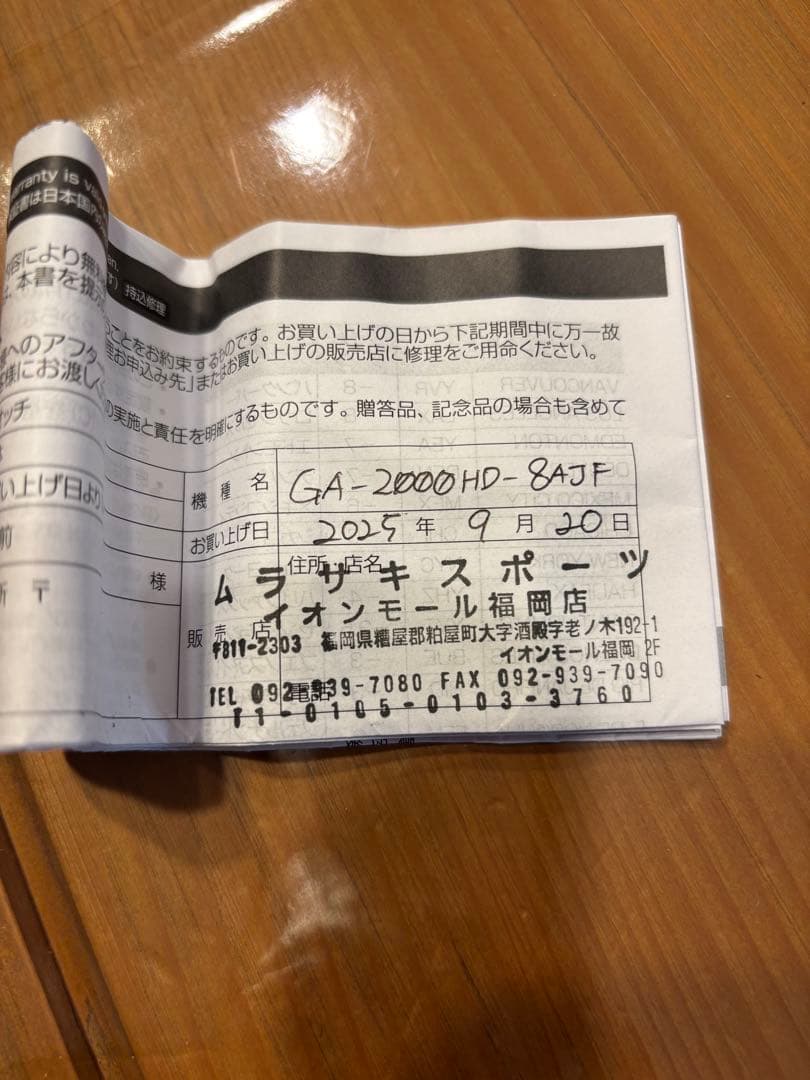 arranty is va
証書は日本国内
en.
す) 持込修理
内容により無
、本書を提
ることをお約束するものです。お買い上げの日から下記期間中に万一故
お申込み先」またはお買い上げの販売店に修理をご用命ください。
様へのアフタ
客様にお渡しく
の実施と責任を明確にするものです。贈答品、記念品の場合も含めて
ッチ
い上げ日より
前
様
所 〒
機種名 GA-2000HD-8AJF
お買い上げ日 2025年 9月 20日
販売店 住所・店名
ムラサキスポーツ
イオンモール福岡店
〒811-2303 福岡県糟屋郡粕屋町大字酒殿字老ノ木192-1
イオンモール福岡 2F
電話
TEL 092-939-7080 FAX 092-939-7090
T1-0105-0103-3760